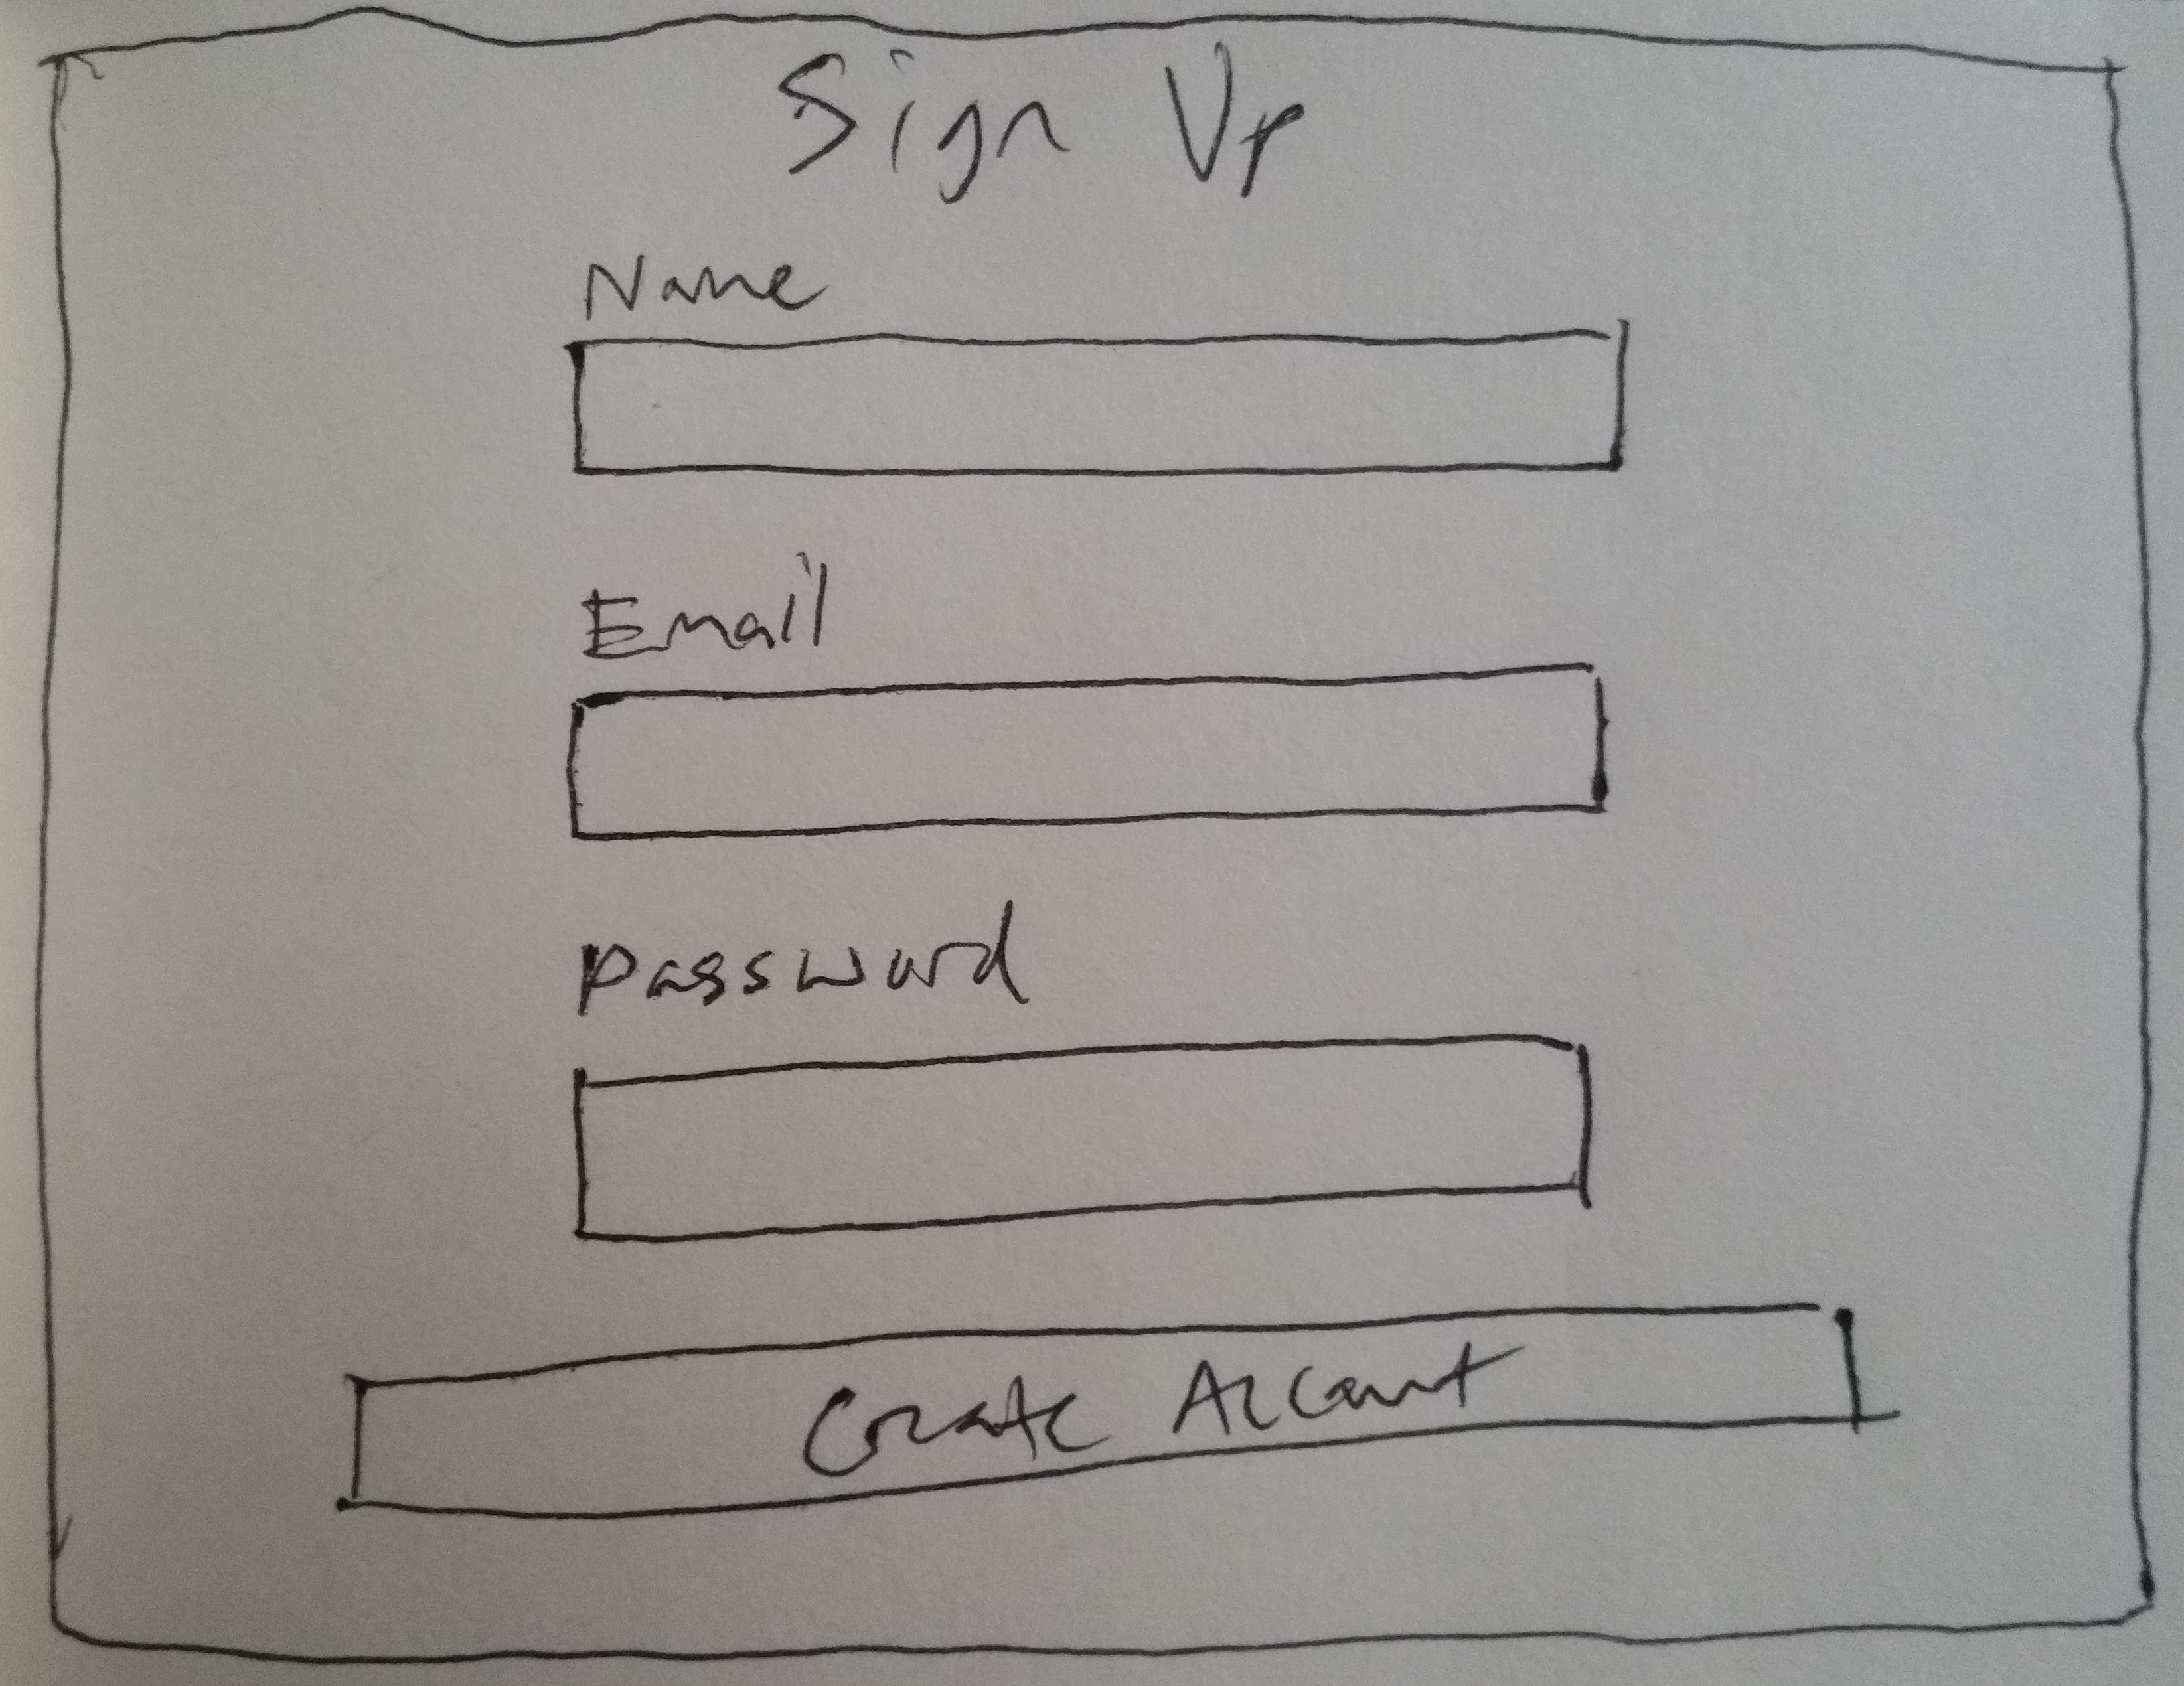 Sign Up
Name
Email
Password
Create Account